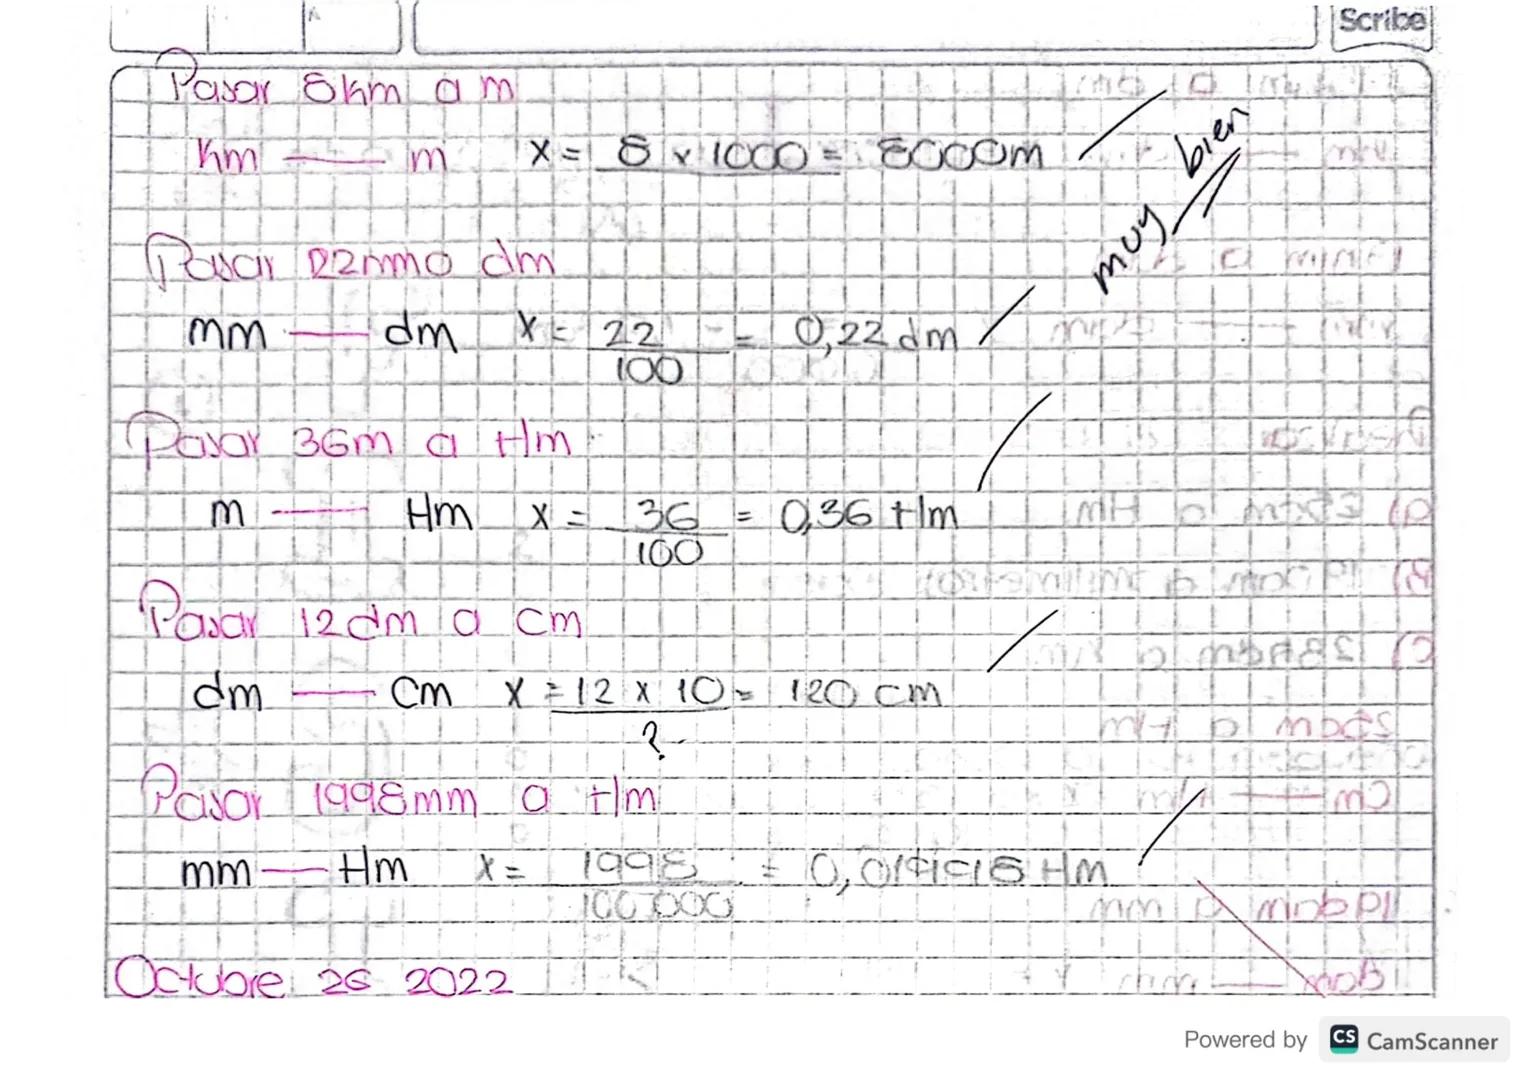 Scribe
Pasar 8km a m
Km — m x = 8 x 1000 = 8000m
muy bien
Pasar 22mm a dm
mm — dm x = 22/100 = 0,22 dm
Pasar 36m a Hm
m — Hm x = 36/100 = 0,36 Hm
Pasar 12dm a cm
dm — cm x = 12 x 10 = 120 cm
?
Pasar 1998mm a Hm
mm — Hm x = 1998/100.000 = 0,01998 Hm
Octubre 26 2022
Powered by CS CamScanner